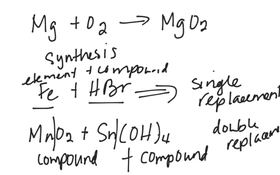 Mg + O2 → MgO2
synthesis
element + compound
Fe + HBr ⇒ single replacement
MnO2 + Sn(OH)4 double
compound + compound